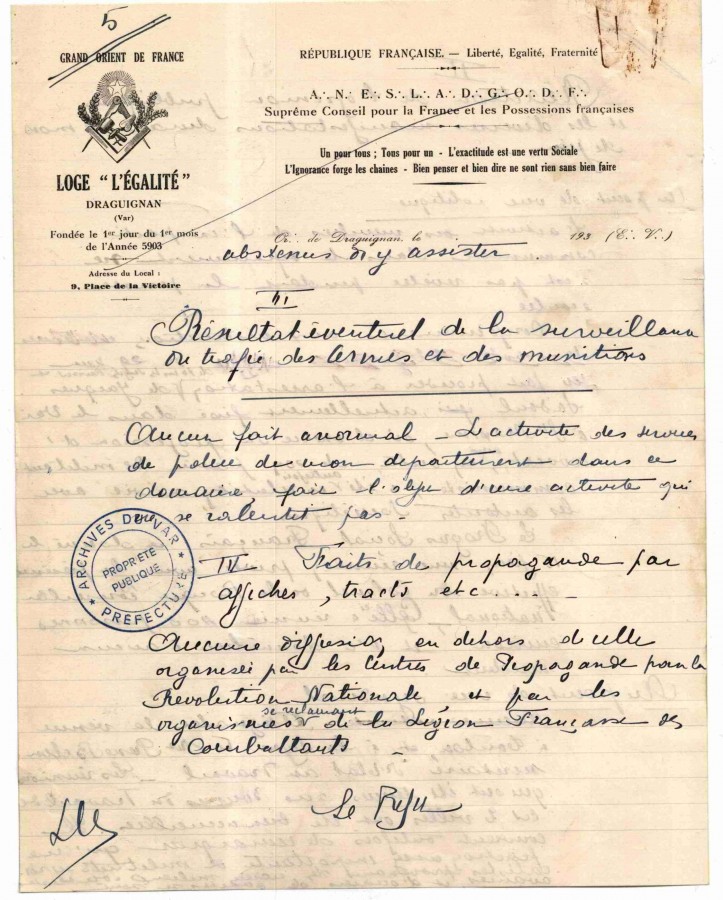 5
GRAND ORIENT DE FRANCE
LOGE "L'ÉGALITÉ"
DRAGUIGNAN
(Var)
Fondée le 1er jour du 1er mois
de l'Année 5903
Adresse du Local :
9, Place de la Victoire
RÉPUBLIQUE FRANÇAISE. — Liberté, Egalité, Fraternité
A∴ N∴ E∴ S∴ L∴ A∴ D∴ G∴ O∴ D∴ F∴
Suprême Conseil pour la France et les Possessions françaises
Un pour tous ; Tous pour un - L'exactitude est une vertu Sociale
L'Ignorance forge les chaines - Bien penser et bien dire ne sont rien sans bien faire
Or∴ de Draguignan, le 193 (E∴ V∴)
abstenus d'y assister
III
Résultat éventuel de la surveillance
du trafic des armes et des munitions
Aucun fait anormal - L'activité des services
de police de mon département dans ce
domaine fait l'objet d'une activité qui
ne se ralentit pas -
IV Faits de propagande par
affiches, tracts etc....
Aucune diffusion, en dehors de celle
organisée par les Centres de Propagande pour la
Révolution Nationale et par les
organismes se réclamant de la Légion Française des
Combattants -
Le Préfet
ARCHIVES DU VAR
PROPRIÉTÉ
PUBLIQUE
PRÉFECTURE